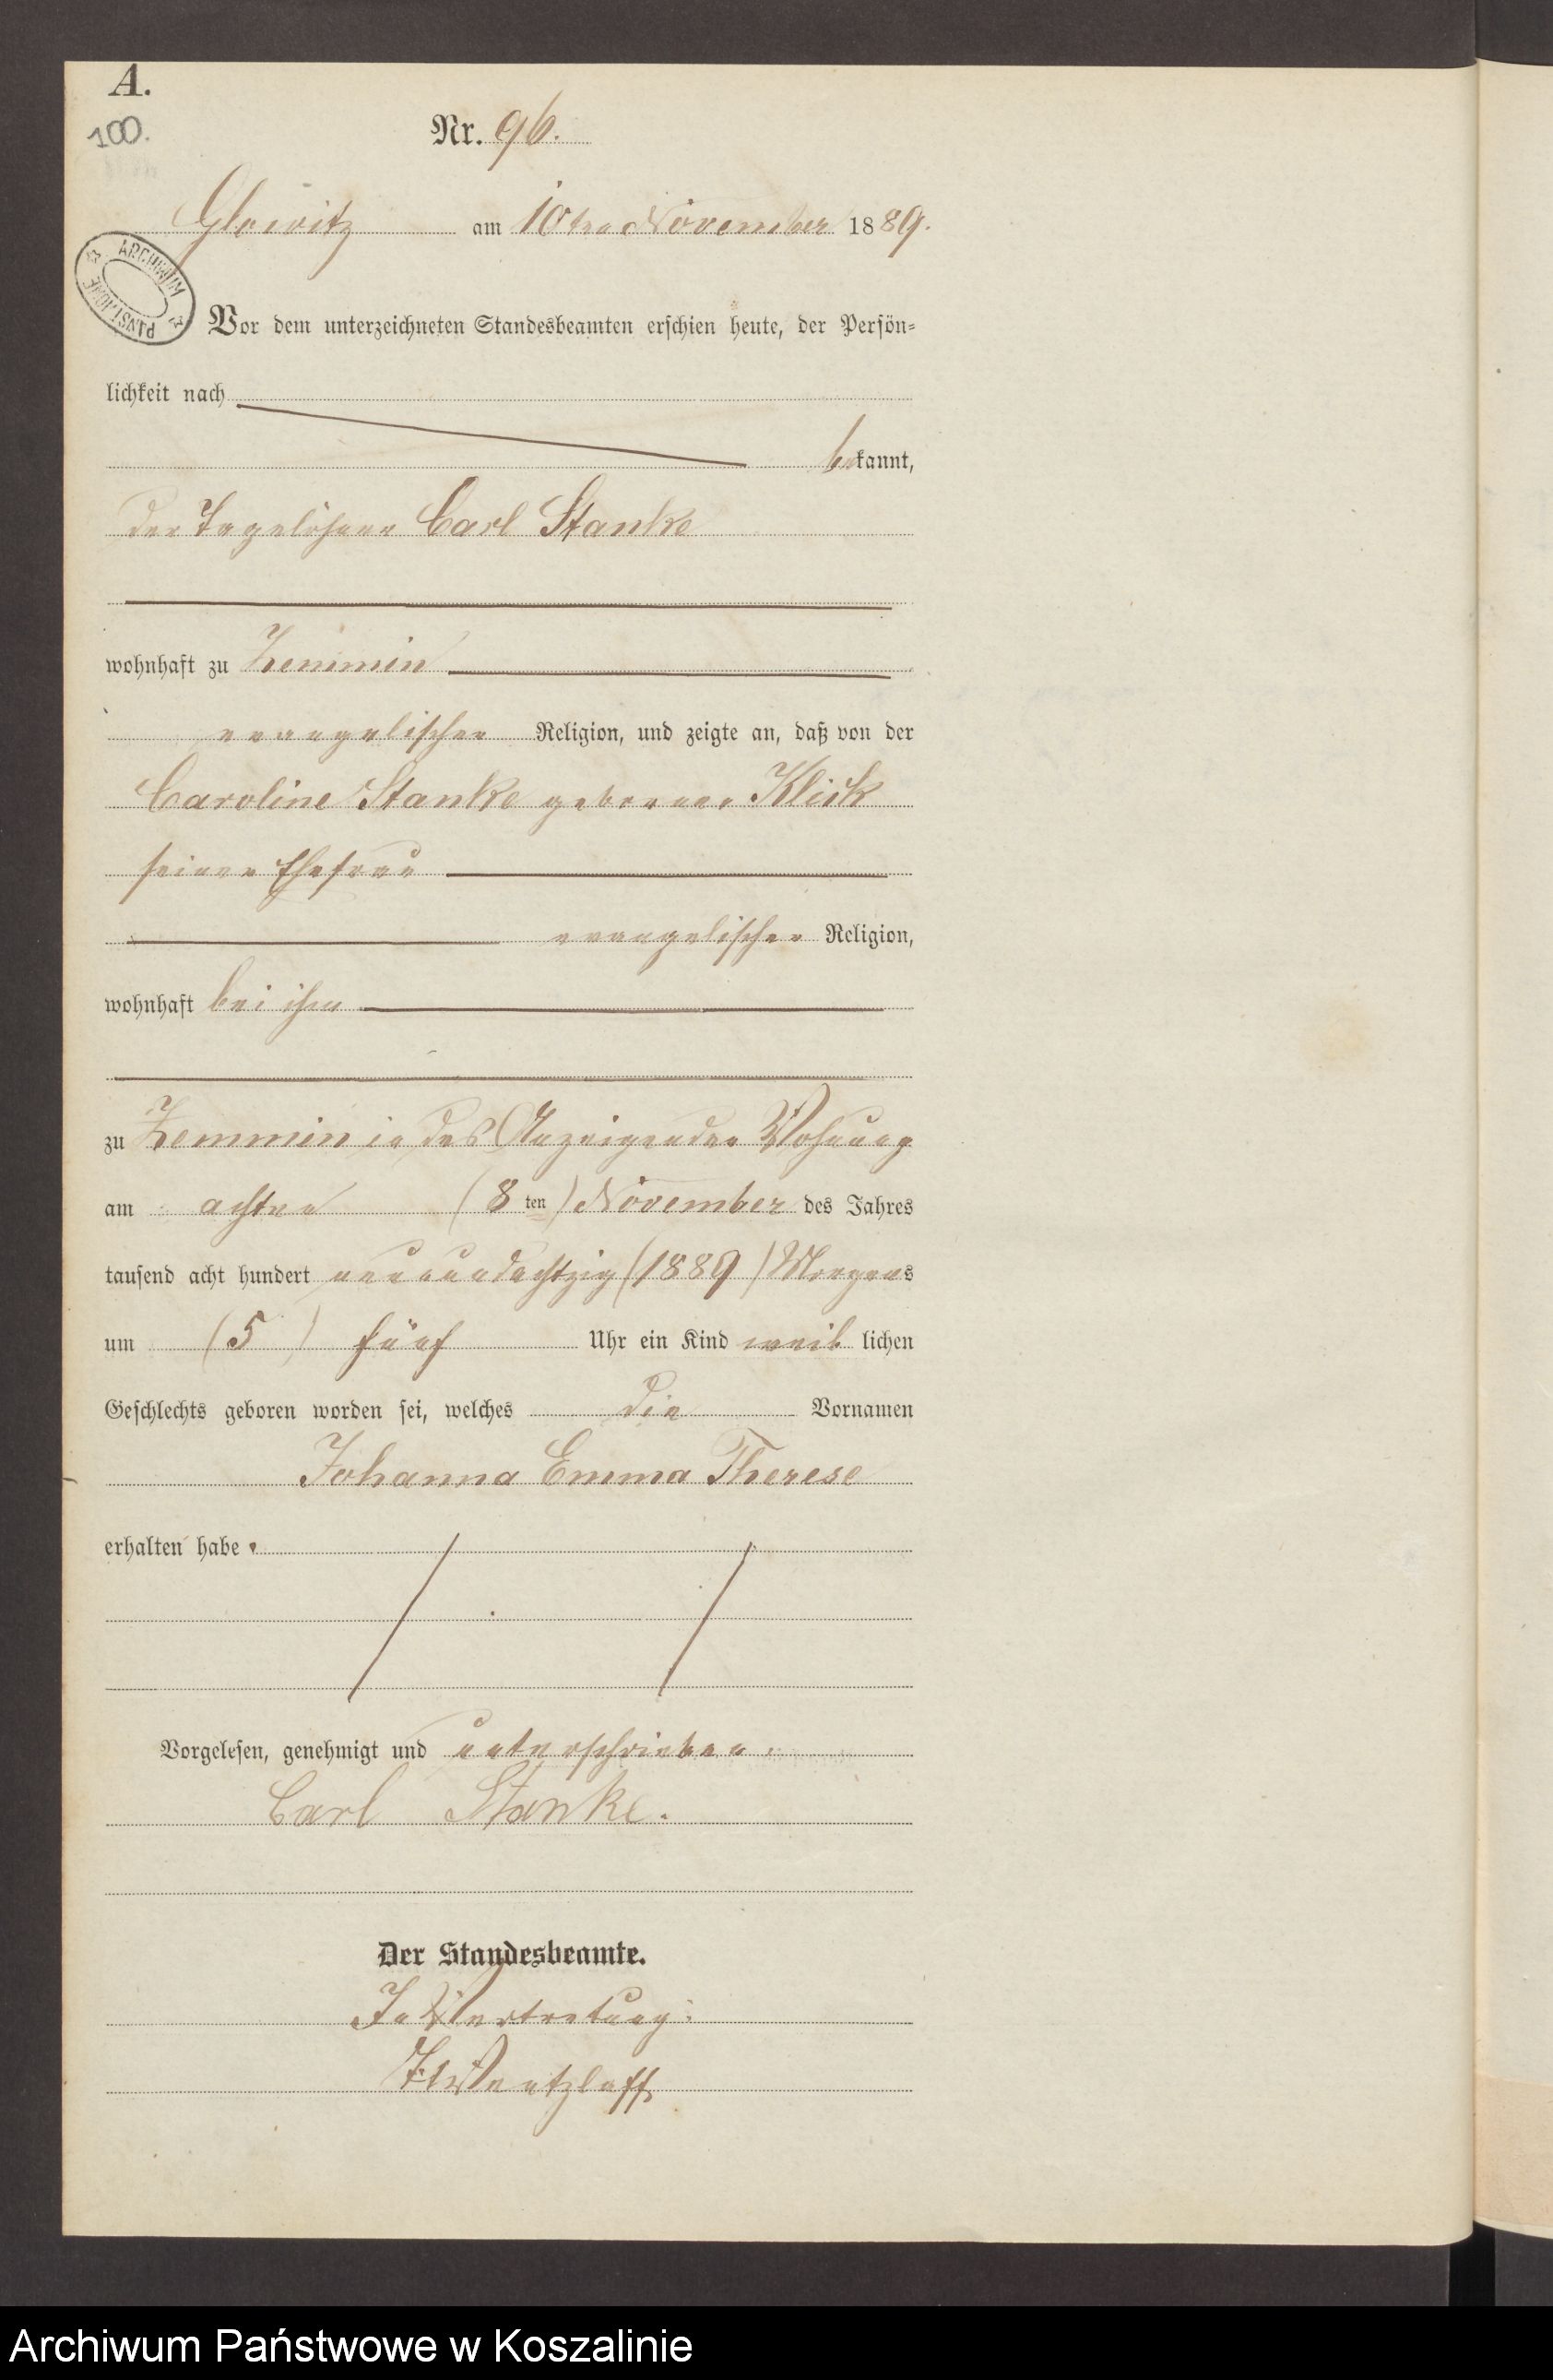 A.
100.
Nr. 96.
Glowitz am 10ten November 1889.
ARCHIWUM PAŃSTWOWE
Vor dem unterzeichneten Standesbeamten erschien heute, der Persön-
lichkeit nach
bekannt,
der Tagelöhner Carl Stanke
wohnhaft zu Zemmin
evangelischer Religion, und zeigte an, daß von der
Caroline Stanke geborenen Klick
seiner Ehefrau
evangelischer Religion,
wohnhaft bei ihm
zu Zemmin in des Anzeigenden Wohnung
am achten (8ten) November des Jahres
tausend acht hundert neunundachtzig (1889) Morgens
um (5) fünf Uhr ein Kind weiblichen
Geschlechts geboren worden sei, welches die Vornamen
Johanna Emma Therese
erhalten habe.
Vorgelesen, genehmigt und unterschrieben.
Carl Stanke.
Der Standesbeamte.
In Vertretung:
Wentzlaff
Archiwum Państwowe w Koszalinie